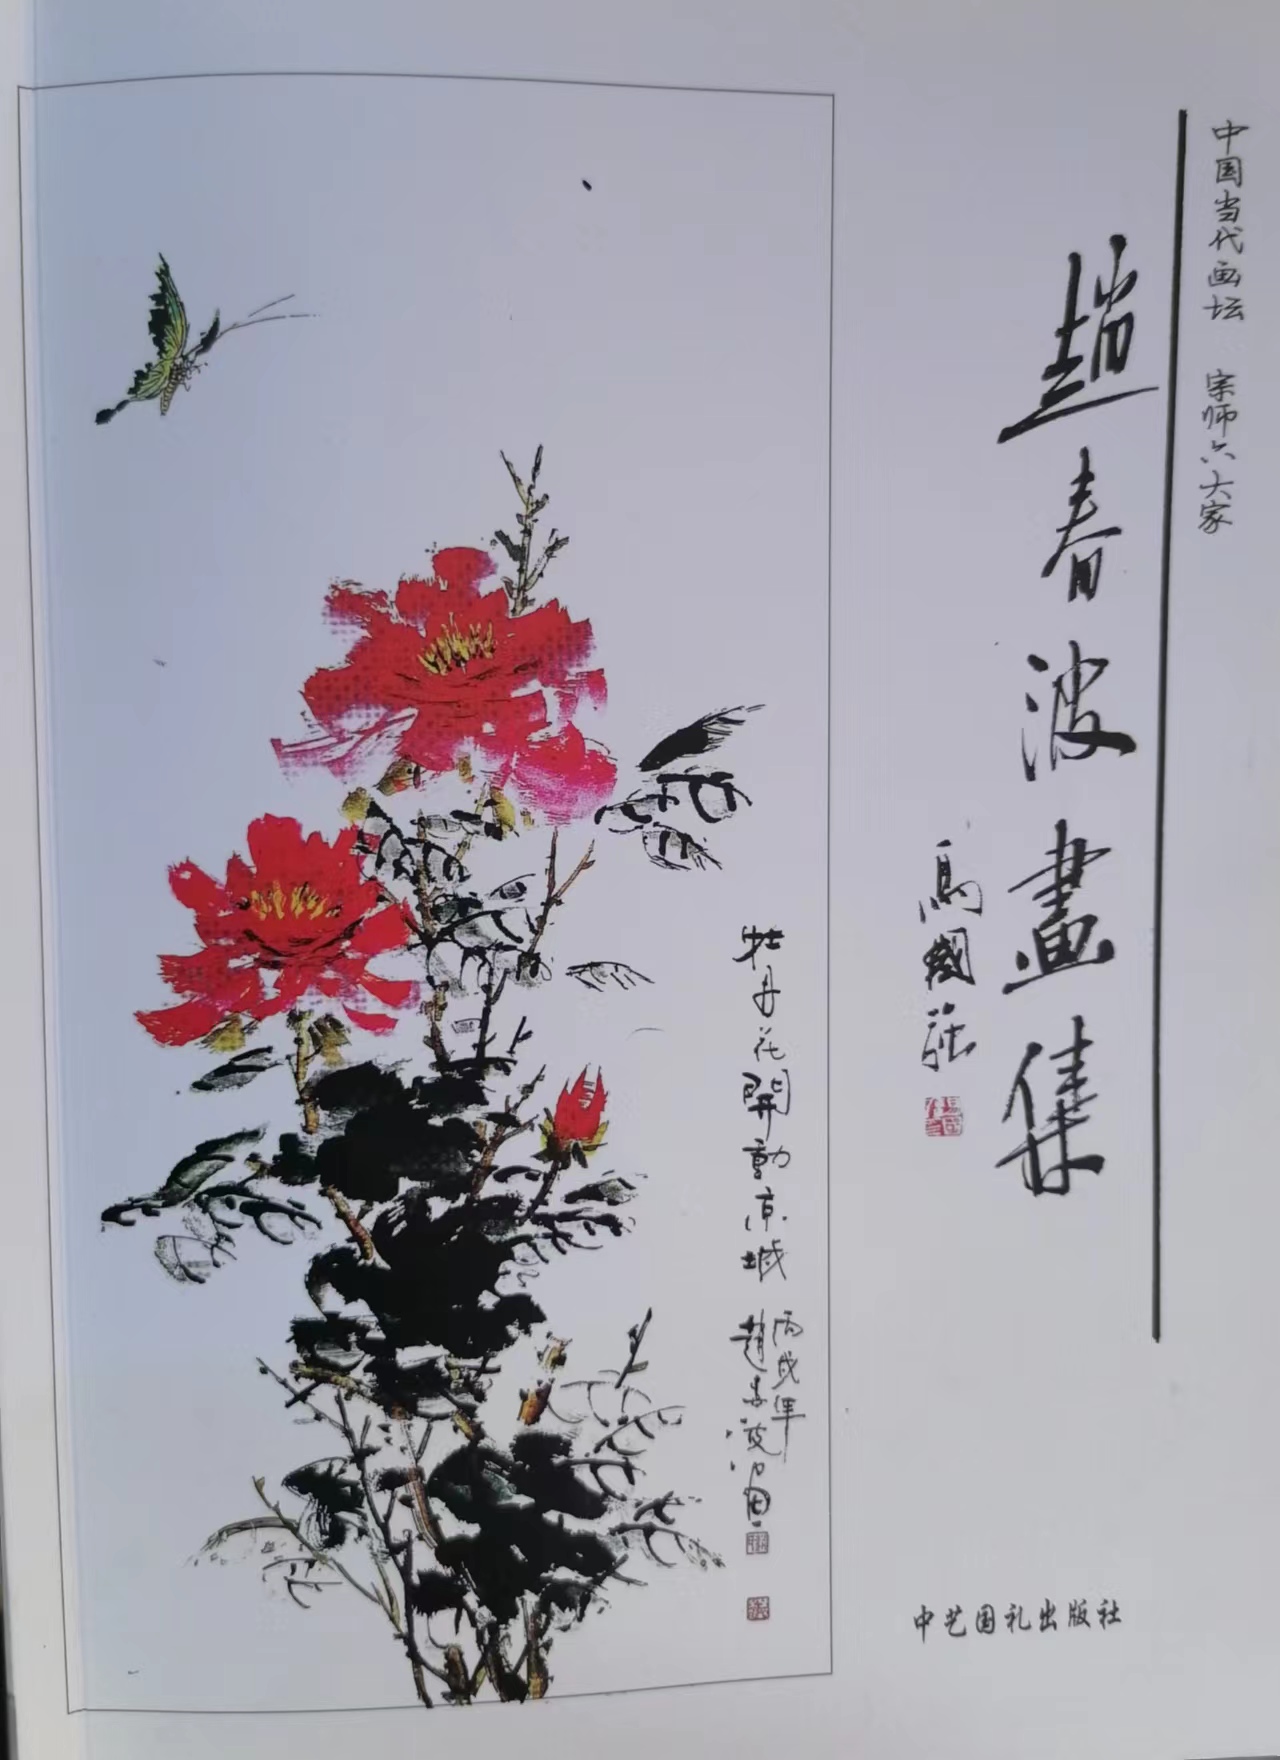 中国当代画坛 宗师六大家
趙春波畫集
牡丹花開動京城
丙戌年
趙春波画
中艺国礼出版社